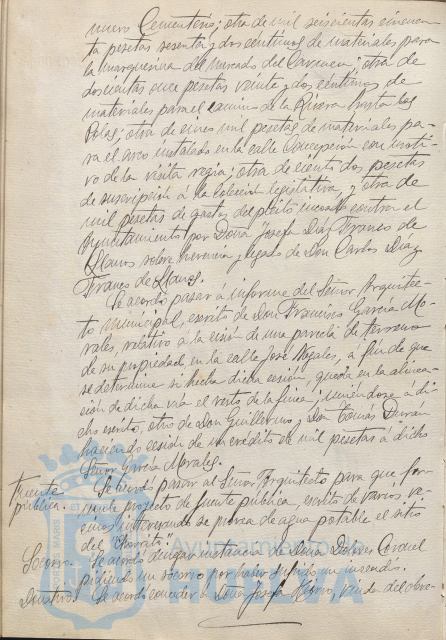 nuevo Cementerio; otra de mil seiscientas cincuen-
ta pesetas sesenta y dos céntimos de materiales para
la marquesina del mercado del Carmen; otra de
doscientas once pesetas veinte y dos céntimos de
materiales para el camino de la Rivera hasta las
Colas; otra de cinco mil pesetas de materiales pa-
ra el arco instalado en la calle Concepción con moti-
vo de la visita regia; otra de ciento dos pesetas
de suscripción á la Colección legislativa, y otra de
mil pesetas de gastos del pleito incoado contra el
Ayuntamiento por Doña Josefa Díaz Franco de
Llanos sobre herencia y legado de Don Carlos Díaz
Franco de Llanos.
Se acordó pasar á informe del Señor Arquitec-
to municipal, escrito de Don Francisco García Mo-
rales, relativo á la cesión de una parcela de terreno
de su propiedad, en la calle José Nogales, á fin de que
se determine si hecha dicha cesión, queda en la alinea-
ción de dicha vía el resto de la finca; uniéndose á di-
cho escrito, otro de Don Guillermo y Don Tomás Durán
haciendo cesión de un crédito de mil pesetas á dicho
Señor García Morales.
Fuente pública. Se acordó pasar al Señor Arquitecto para que for-
mule proyecto de fuente pública, escrito de varios ve-
cinos interesando se provea de agua potable el sitio
del
Socorro. Se acordó denegar instancia de Doña Dolores Coronel
pidiendo un socorro por haber sufrido un incendio.
Donativo. Se acordó conceder á Doña Josefa viuda del obre-
Ayuntamiento de
HUELVA